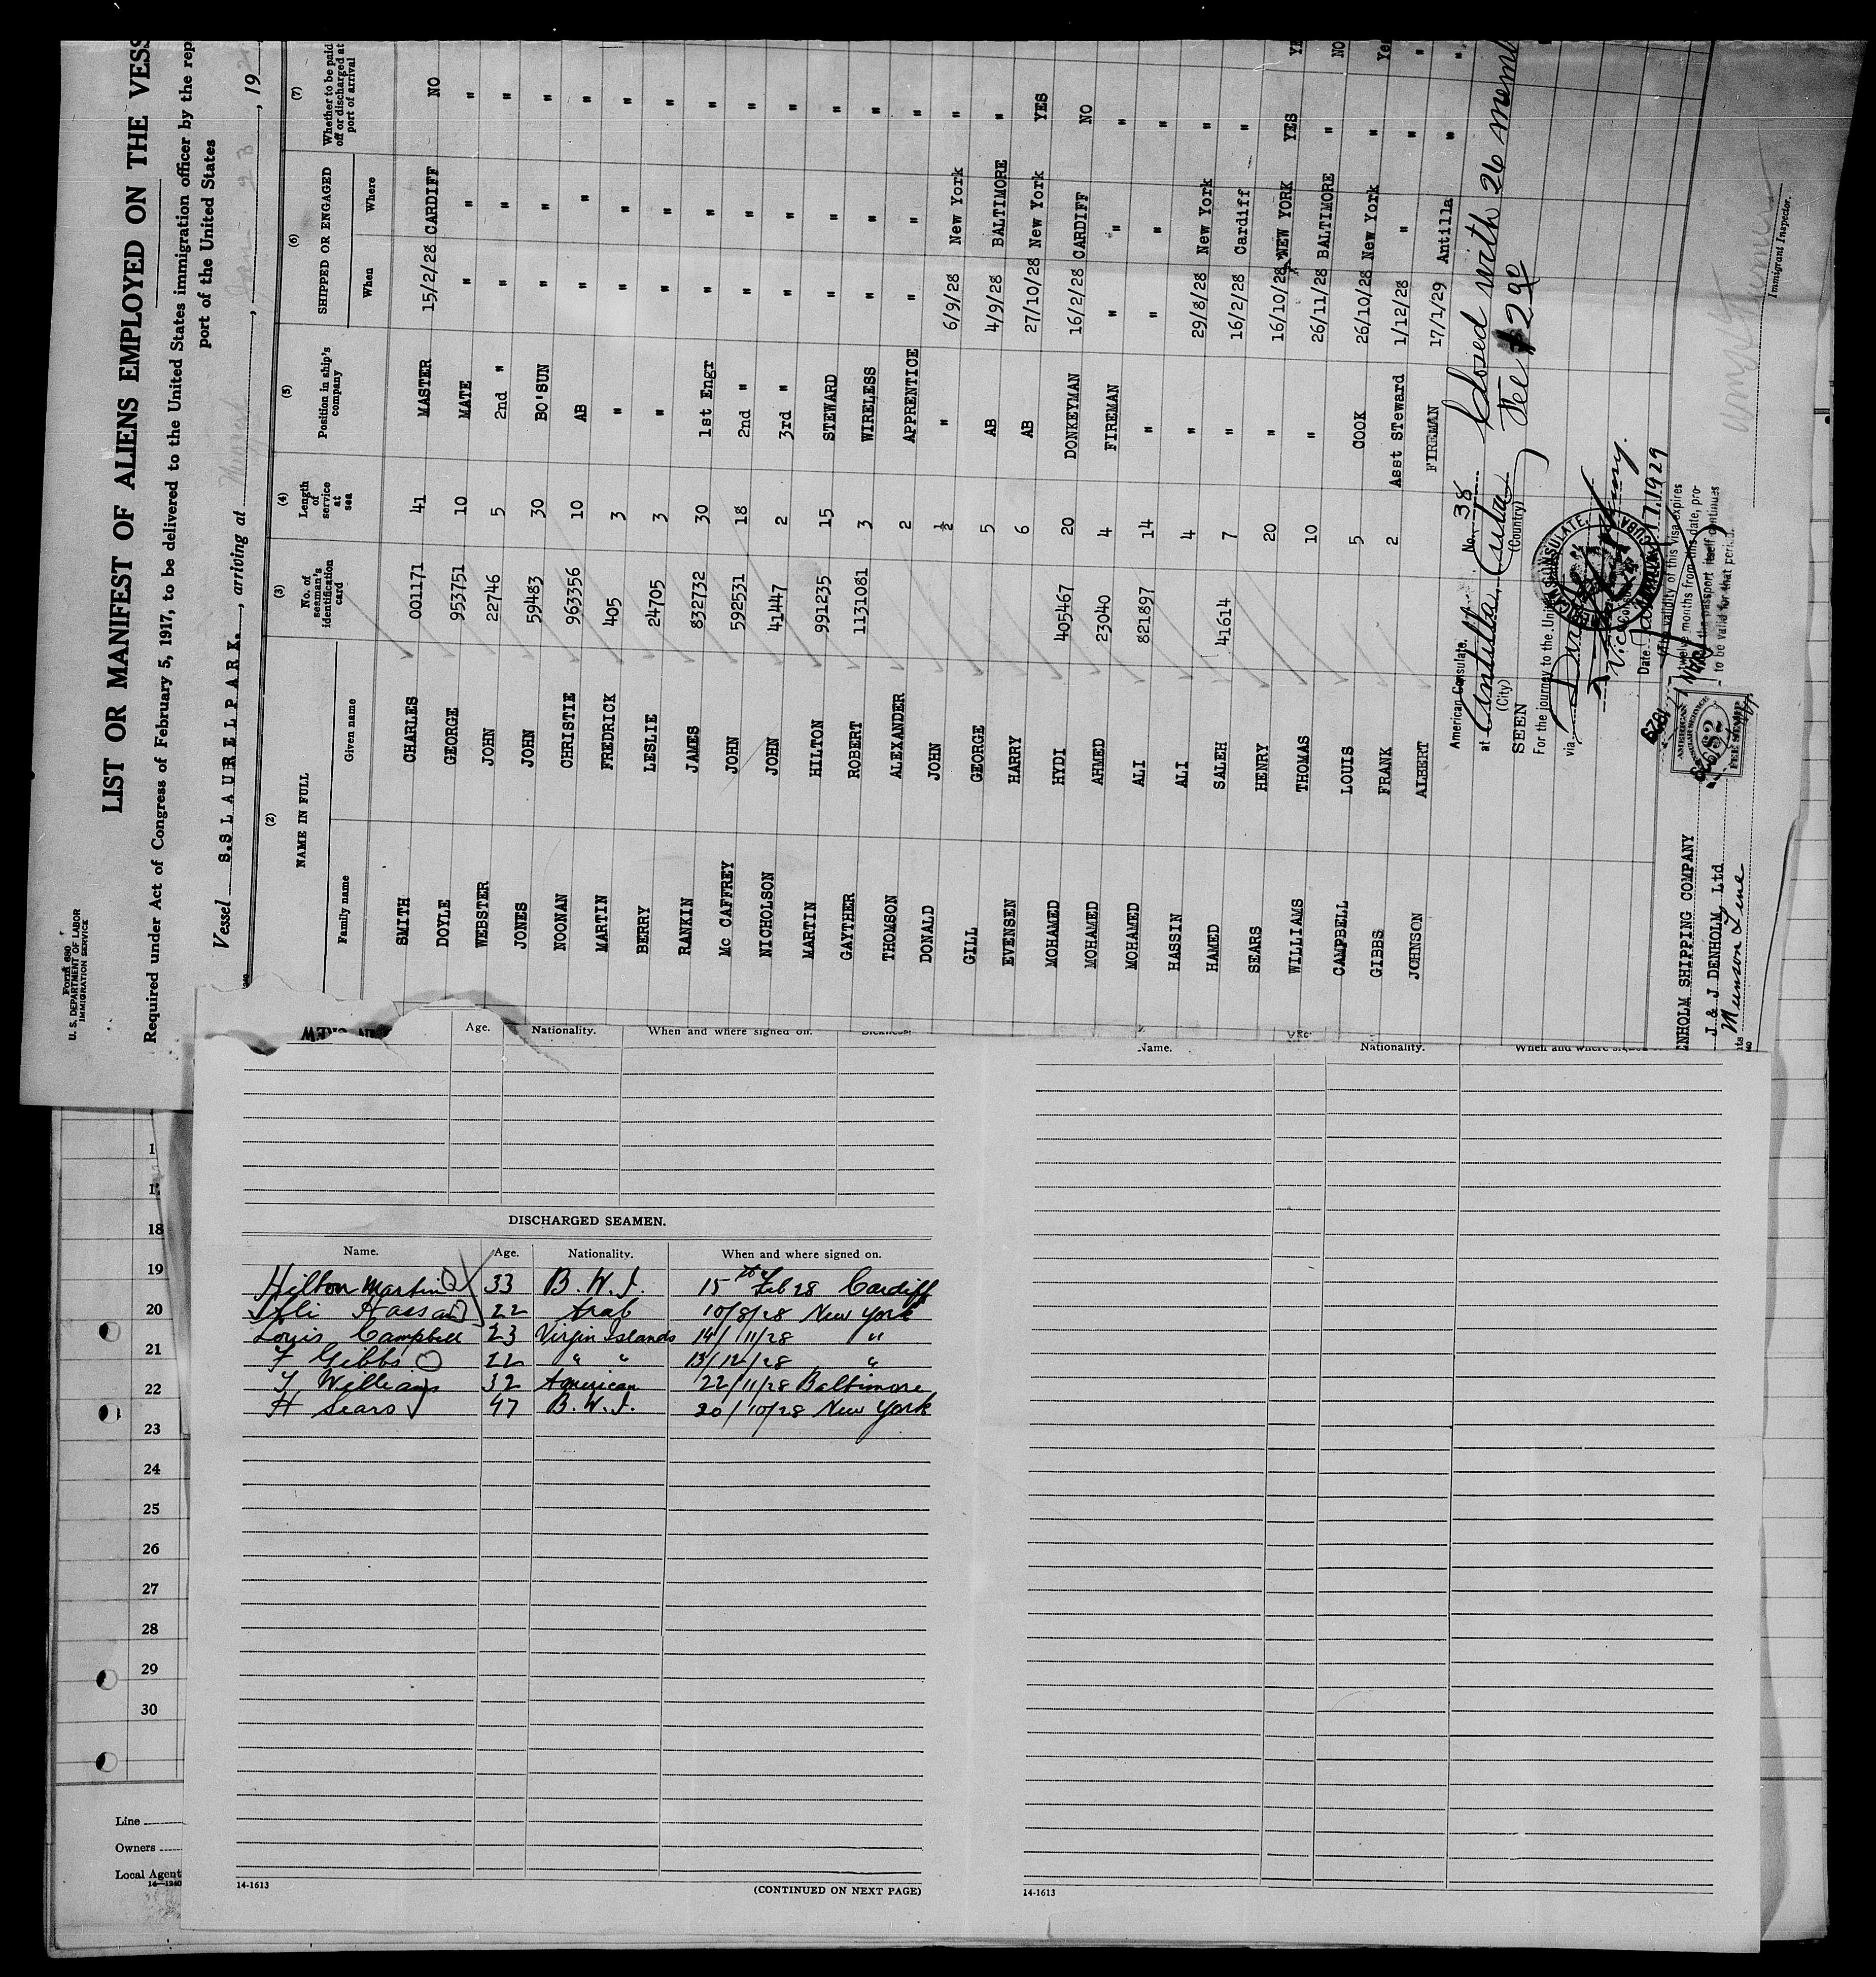 Form 680
U. S. DEPARTMENT OF LABOR
IMMIGRATION SERVICE
LIST OR MANIFEST OF ALIENS EMPLOYED ON THE VESS
Required under Act of Congress of February 5, 1917, to be delivered to the United States immigration officer by the rep
port of the United States
Vessel S.S LAURELPARK., arriving at , 19
(2) (3) (4) (5) (6) (7)
NAME IN FULL No. of seaman's identification card Length of service at sea Position in ship's company SHIPPED OR ENGAGED Whether to be paid off or discharged at port of arrival
Family name Given name When Where
SMITH CHARLES 001171 41 MASTER 15/2/28 CARDIFF NO
DOYLE GEORGE 953751 10 MATE " " "
WEBSTER JOHN 22746 5 2nd " " " "
JONES JOHN 59483 30 BO'SUN " " "
NOONAN CHRISTIE 963356 10 AB " " "
MARTIN FREDRICK 405 3 " " " "
BERRY LESLIE 24705 3 " " " "
RANKIN JAMES 832732 30 1st Engr " " "
Mc CAFFREY JOHN 592531 18 2nd " " " "
NICHOLSON JOHN 41447 2 3rd " " " "
MARTIN HILTON 991235 15 STEWARD " " "
GAYTHER ROBERT 1131081 3 WIRELESS " " "
THOMSON ALEXANDER 2 APPRENTICE " " "
DONALD JOHN ½ " 6/9/28 New York "
GILL GEORGE 5 AB 4/9/28 BALTIMORE "
EVENSEN HARRY 6 AB 27/10/28 New York YES
MOHAMED HYDI 405467 20 DONKEYMAN 16/2/28 CARDIFF NO
MOHAMED AHMED 23040 4 FIREMAN " " "
MOHAMED ALI 821897 14 " " " "
HASSIN ALI 4 " 29/8/28 New York "
HAMED SALEH 41614 7 " 16/2/28 Cardiff "
SEARS HENRY 20 " 16/10/28 NEW YORK YES
WILLIAMS THOMAS 10 " 26/11/28 BALTIMORE "
CAMPBELL LOUIS 5 COOK 26/10/28 New York "
GIBBS FRANK 2 Asst Steward 1/12/28 " "
JOHNSON ALBERT FIREMAN 17/1/29 Antilla "
American Consulate. No. 38 Closed with 26 memb
at Antilla, Cuba Fee $2.90
(City) (Country)
SEEN
For the journey to the Unit
via
AMERICAN CONSULATE
Vice Consul
Date. JAN 17 1929
The validity of this visa expires
twelve months from this date, pro-
the passport itself continues
to be valid for that period.
1929
AMERICAN
FEE STAMP
$2
ENHOLM SHIPPING COMPANY
J. & J DENHOLM, Ltd
Munson Line
Immigrant Inspector.
Age. Nationality. When and where signed on.
Name. Nationality. When and where
DISCHARGED SEAMEN.
Name. Age. Nationality. When and where signed on.
Hilton Martin 33 B. W. I. 15th Feb 28 Cardiff
Ali Hassan 22 Arab 10/8/28 New York
Louis Campbell 23 Virgin Islands 14/11/28 "
F Gibbs 22 " " 13/12/28 "
T Williams 32 American 22/11/28 Baltimore
H Sears 47 B. W. I. 20/10/28 New York
18
19
20
21
22
23
24
25
26
27
28
29
30
Line
Owners
Local Agent
14—1240
14-1613 (CONTINUED ON NEXT PAGE) 14-1613